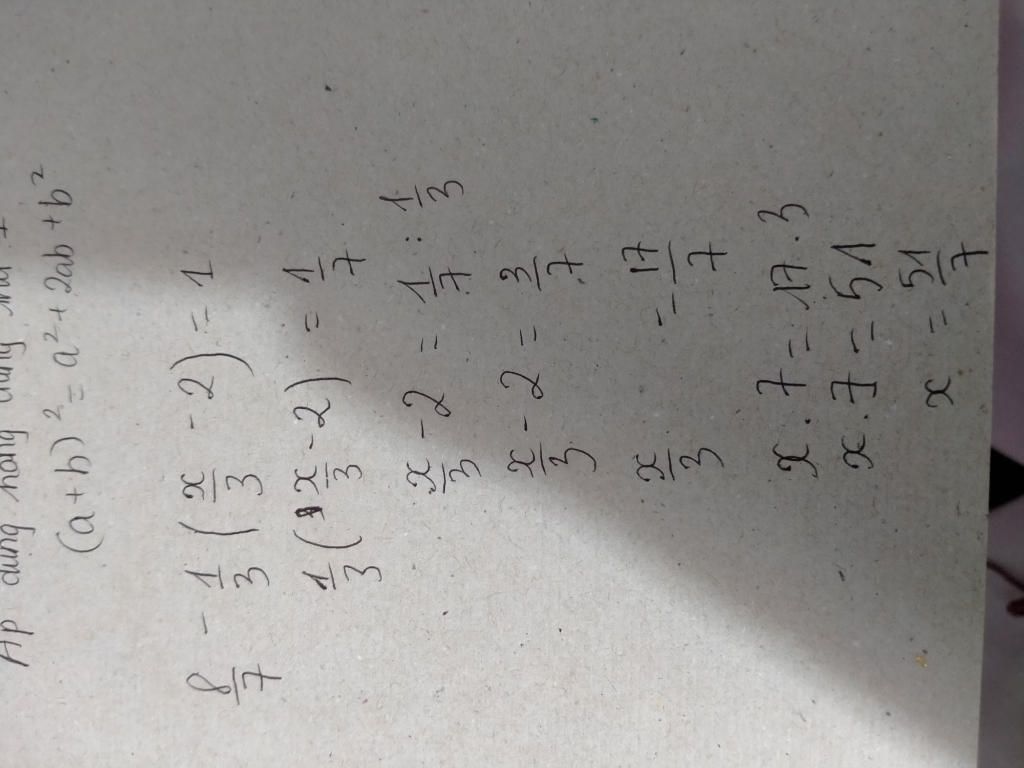 Áp dụng hằng
(a + b)² = a² + 2ab + b²
8/7 - 1/3 (x/3 - 2) = 1
1/3 (x/3 - 2) = 1/7
x/3 - 2 = 1/7 : 1/3
x/3 - 2 = 3/7
x/3 = 17/7
x . 7 = 17 . 3
x . 7 = 51
x = 51/7